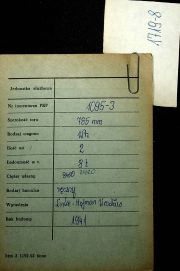 17198
Jednostka służbowa
Nr inwentarza PKP 1095-3
Szerokość toru 785 mm
Rodzaj wagonu Wh
Ilość osi 2
Ładowność w t. 8 t
Ciężar własny
Rodzaj hamulca ręczny
Wytwórnia Linke-Hofman Wrocław
Rok budowy 1941